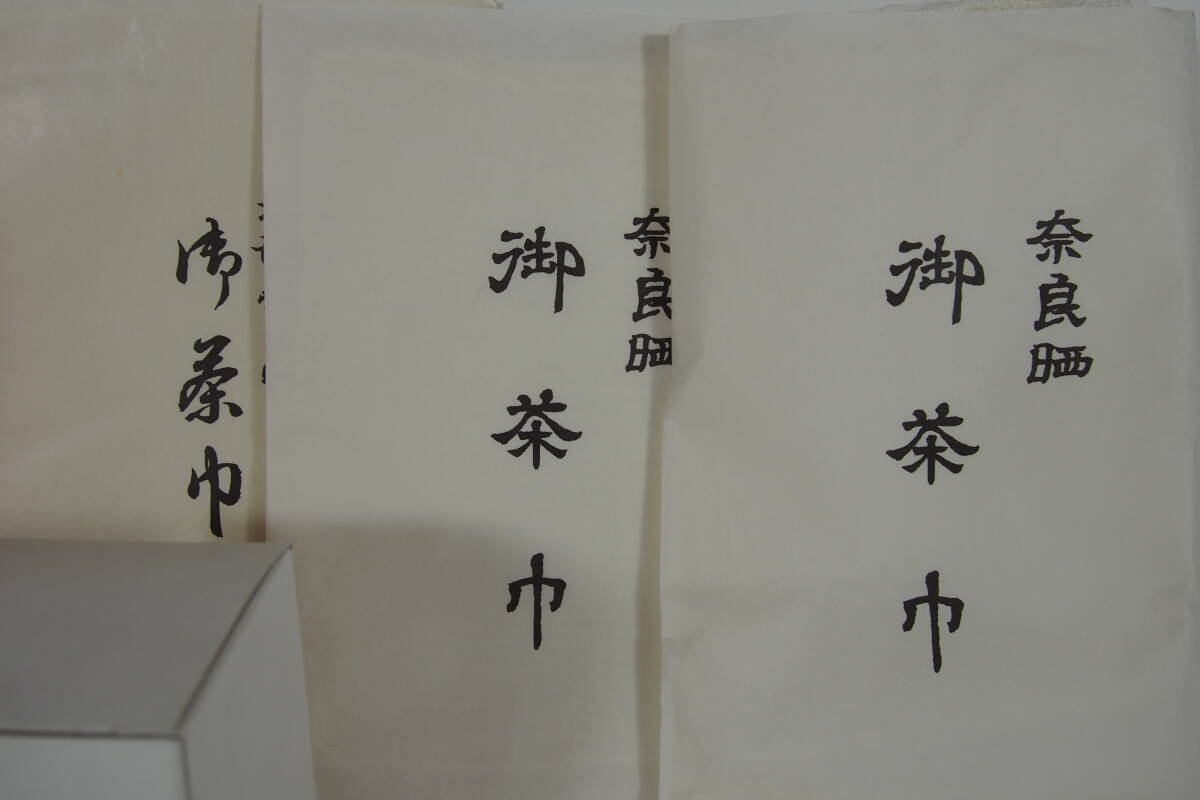 奈良晒
御茶巾
奈良晒
御茶巾
御茶巾